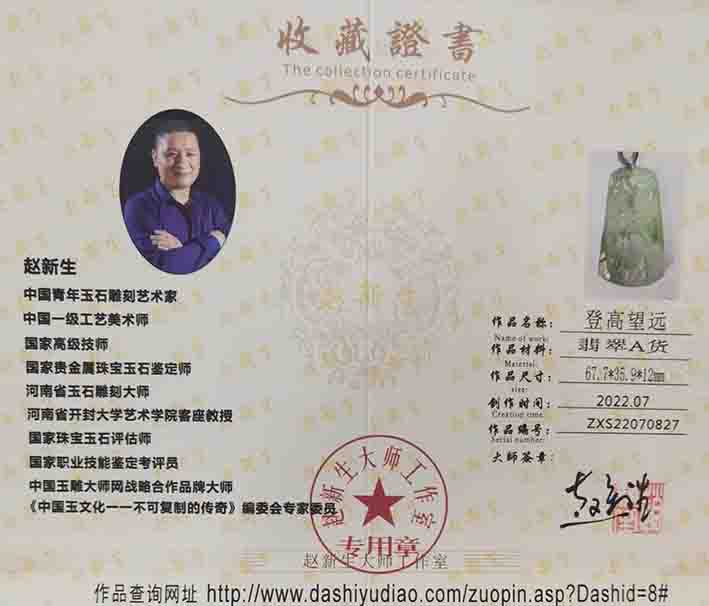 收藏證書
The collection certificate
赵新生
中国青年玉石雕刻艺术家
中国一级工艺美术师
国家高级技师
国家贵金属珠宝玉石鉴定师
河南省玉石雕刻大师
河南省开封大学艺术学院客座教授
国家珠宝玉石评估师
国家职业技能鉴定考评员
中国玉雕大师网战略合作品牌大师
《中国玉文化一一不可复制的传奇》编委会专家委员
赵新生
作品名称： 登高望远
Name of work:
作品材料： 翡翠A货
Material:
作品尺寸： 67.7*35.9*12mm
size:
创作时间： 2022.07
Creating time:
作品编号： ZXS22070827
Serial number:
大師签章：
赵新生大师工作室
专用章
赵新生大师工作室
作品查询网址 http://www.dashiyudiao.com/zuopin.asp?Dashid=8#